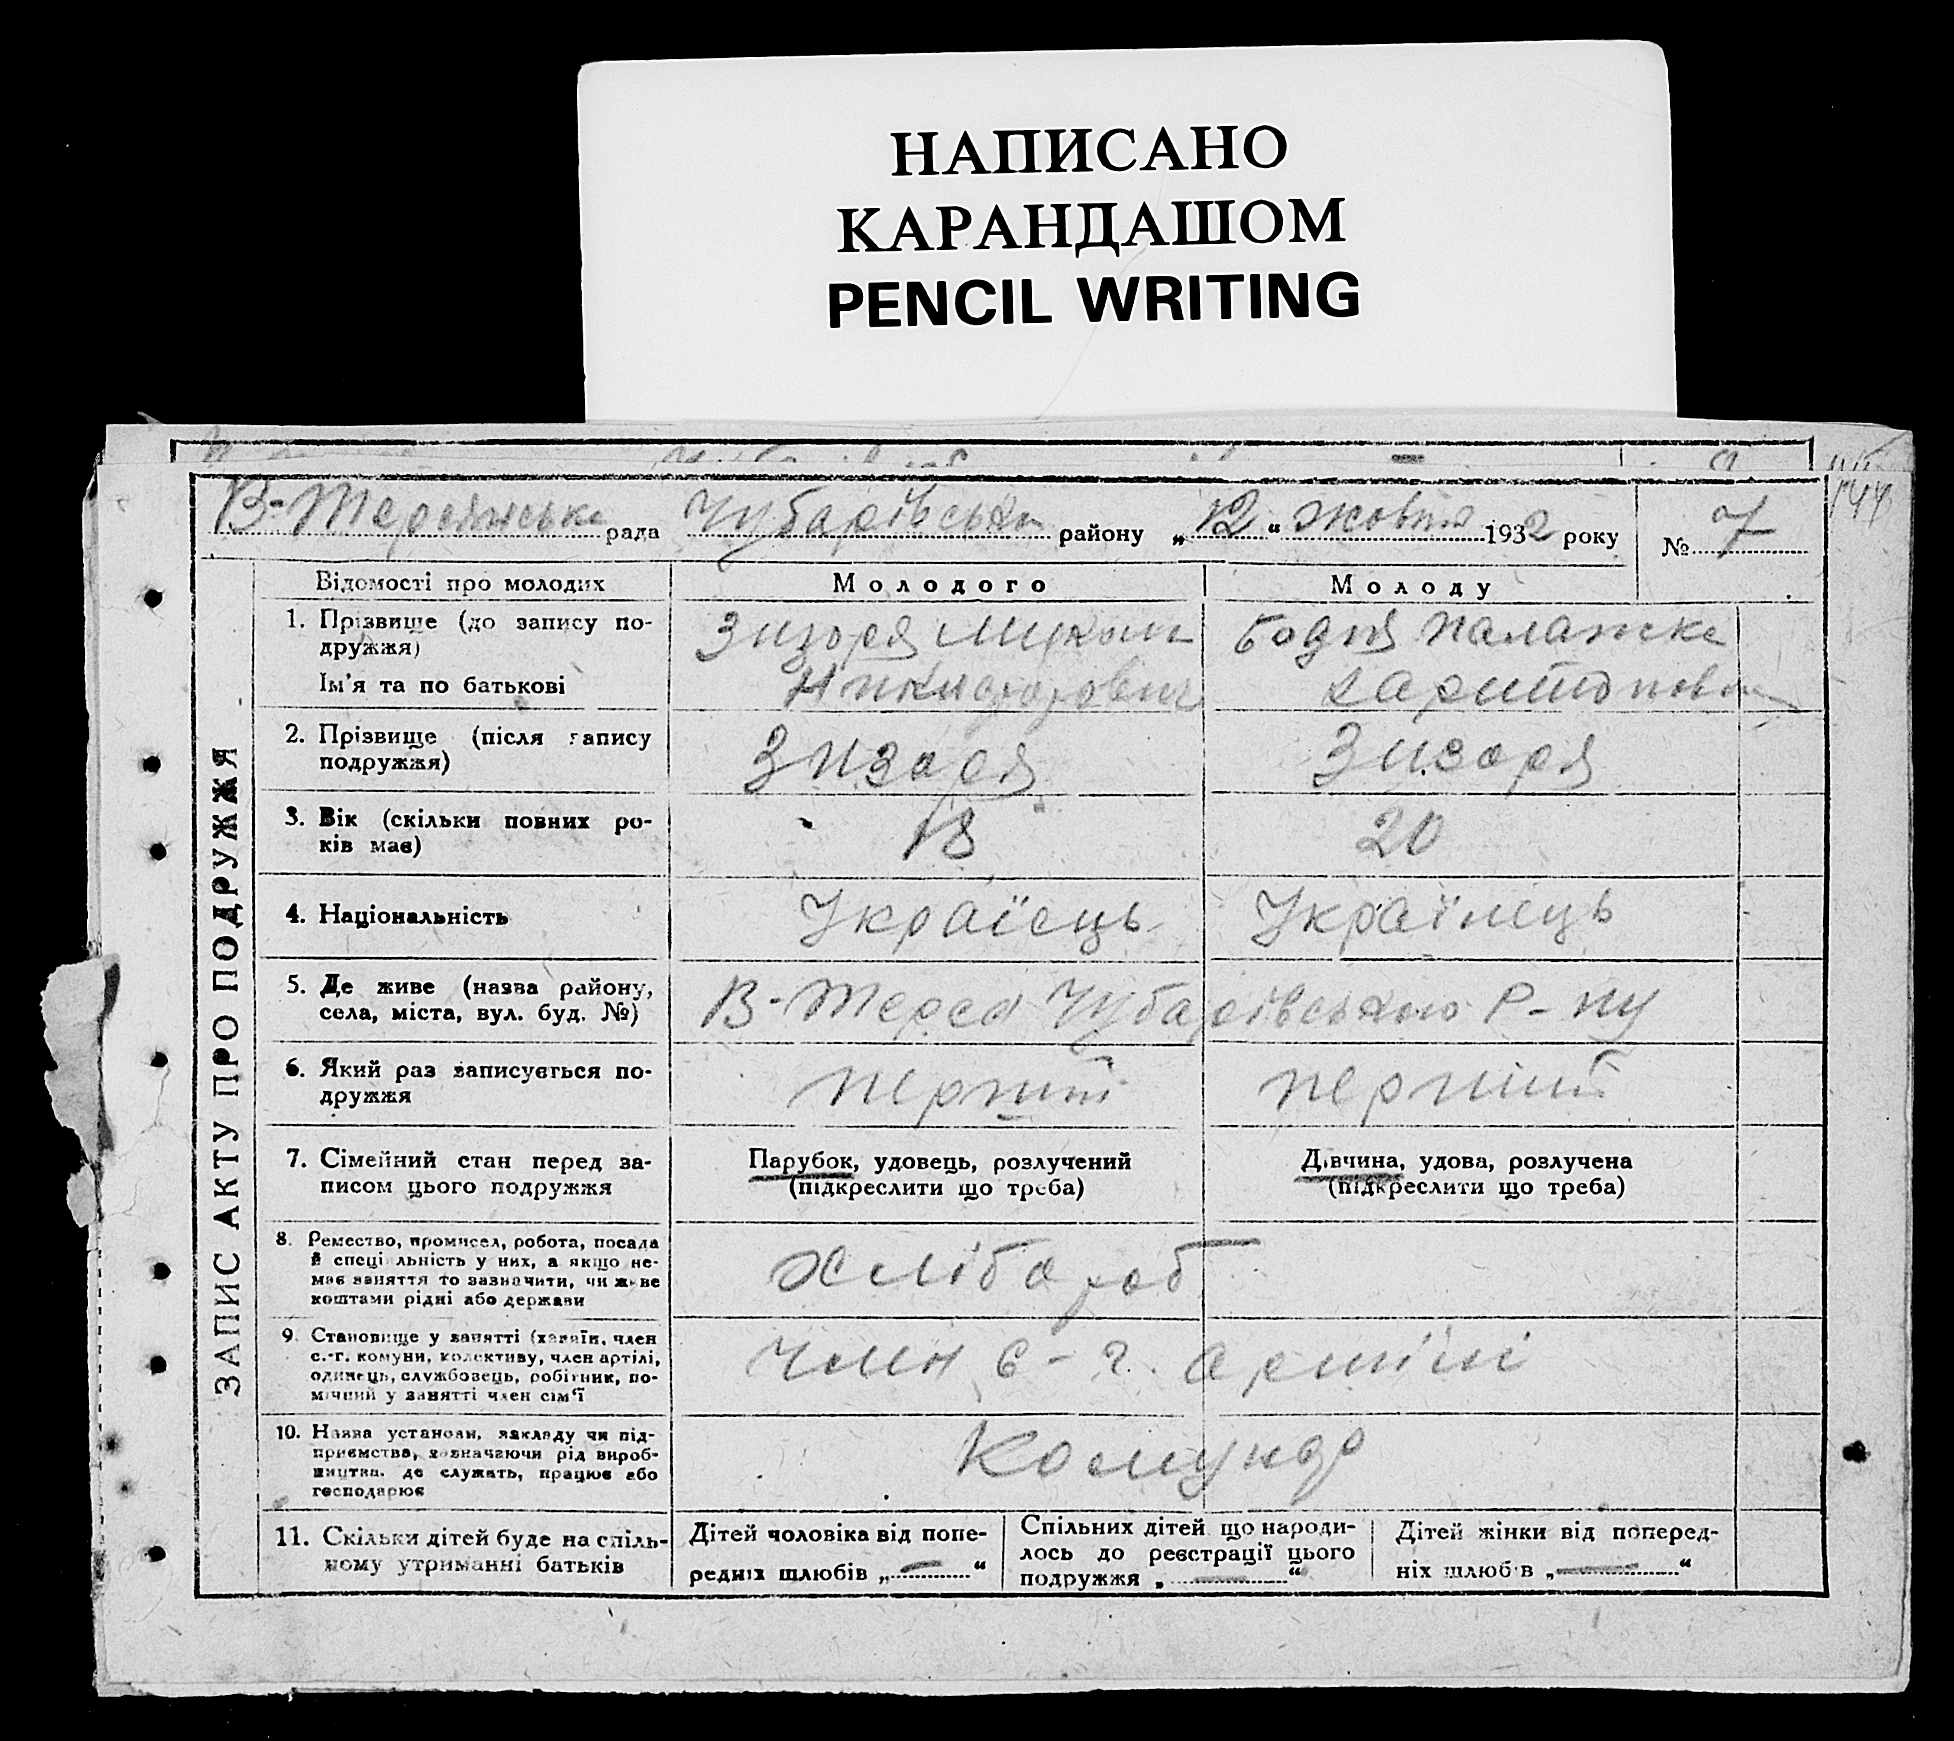 НАПИСАНО
КАРАНДАШОМ
PENCIL WRITING
144
В-Терсянська рада Чубарівська району „12“ жовтня 1932 року № 7
ЗАПИС АКТУ ПРО ПОДРУЖЖЯ
Відомості про молодих Молодого Молоду
1. Прізвище (до запису по-
дружжя)
Ім'я та по батькові
Зизоря Микола
Никифорович
Бодня Палажка
Харитоновна
2. Прізвище (після запису
подружжя)
Зизоря Зизоря
3. Вік (скільки повних ро-
ків має)
18 20
4. Національність Украієць Українець
5. Де живе (назва району,
села, міста, вул. буд. №)
В-Терса Чубарівського Р-ну
6. Який раз записується по-
дружжя
перший перший
7. Сімейний стан перед за-
писом цього подружжя
Парубок, удовець, розлучений
(підкреслити що треба)
Дівчина, удова, розлучена
(підкреслити що треба)
8. Ремество, промисел, робота, посада
й спеціальність у них, а якщо не-
має заняття то зазначити, чи живе
коштами рідні або держави
Хлібороб
9. Становище у занятті (хазяїн, член
с.-г. комуни, колективу, член артілі,
одинець, службовець, робітник, по-
мічний у занятті член сім'ї
Член с-г. артілі
10. Назва установи, закладу чи під-
приємства, зазначаючи рід вироб-
ництва, де служить, працює або
господарює
11. Скільки дітей буде на спіль-
ному утриманні батьків
Дітей чоловіка від попе-
редніх шлюбів „—“
Спільних дітей що народи-
лось до реєстрації цього
подружжя „—“
Дітей жінки від поперед-
ніх шлюбів „—“